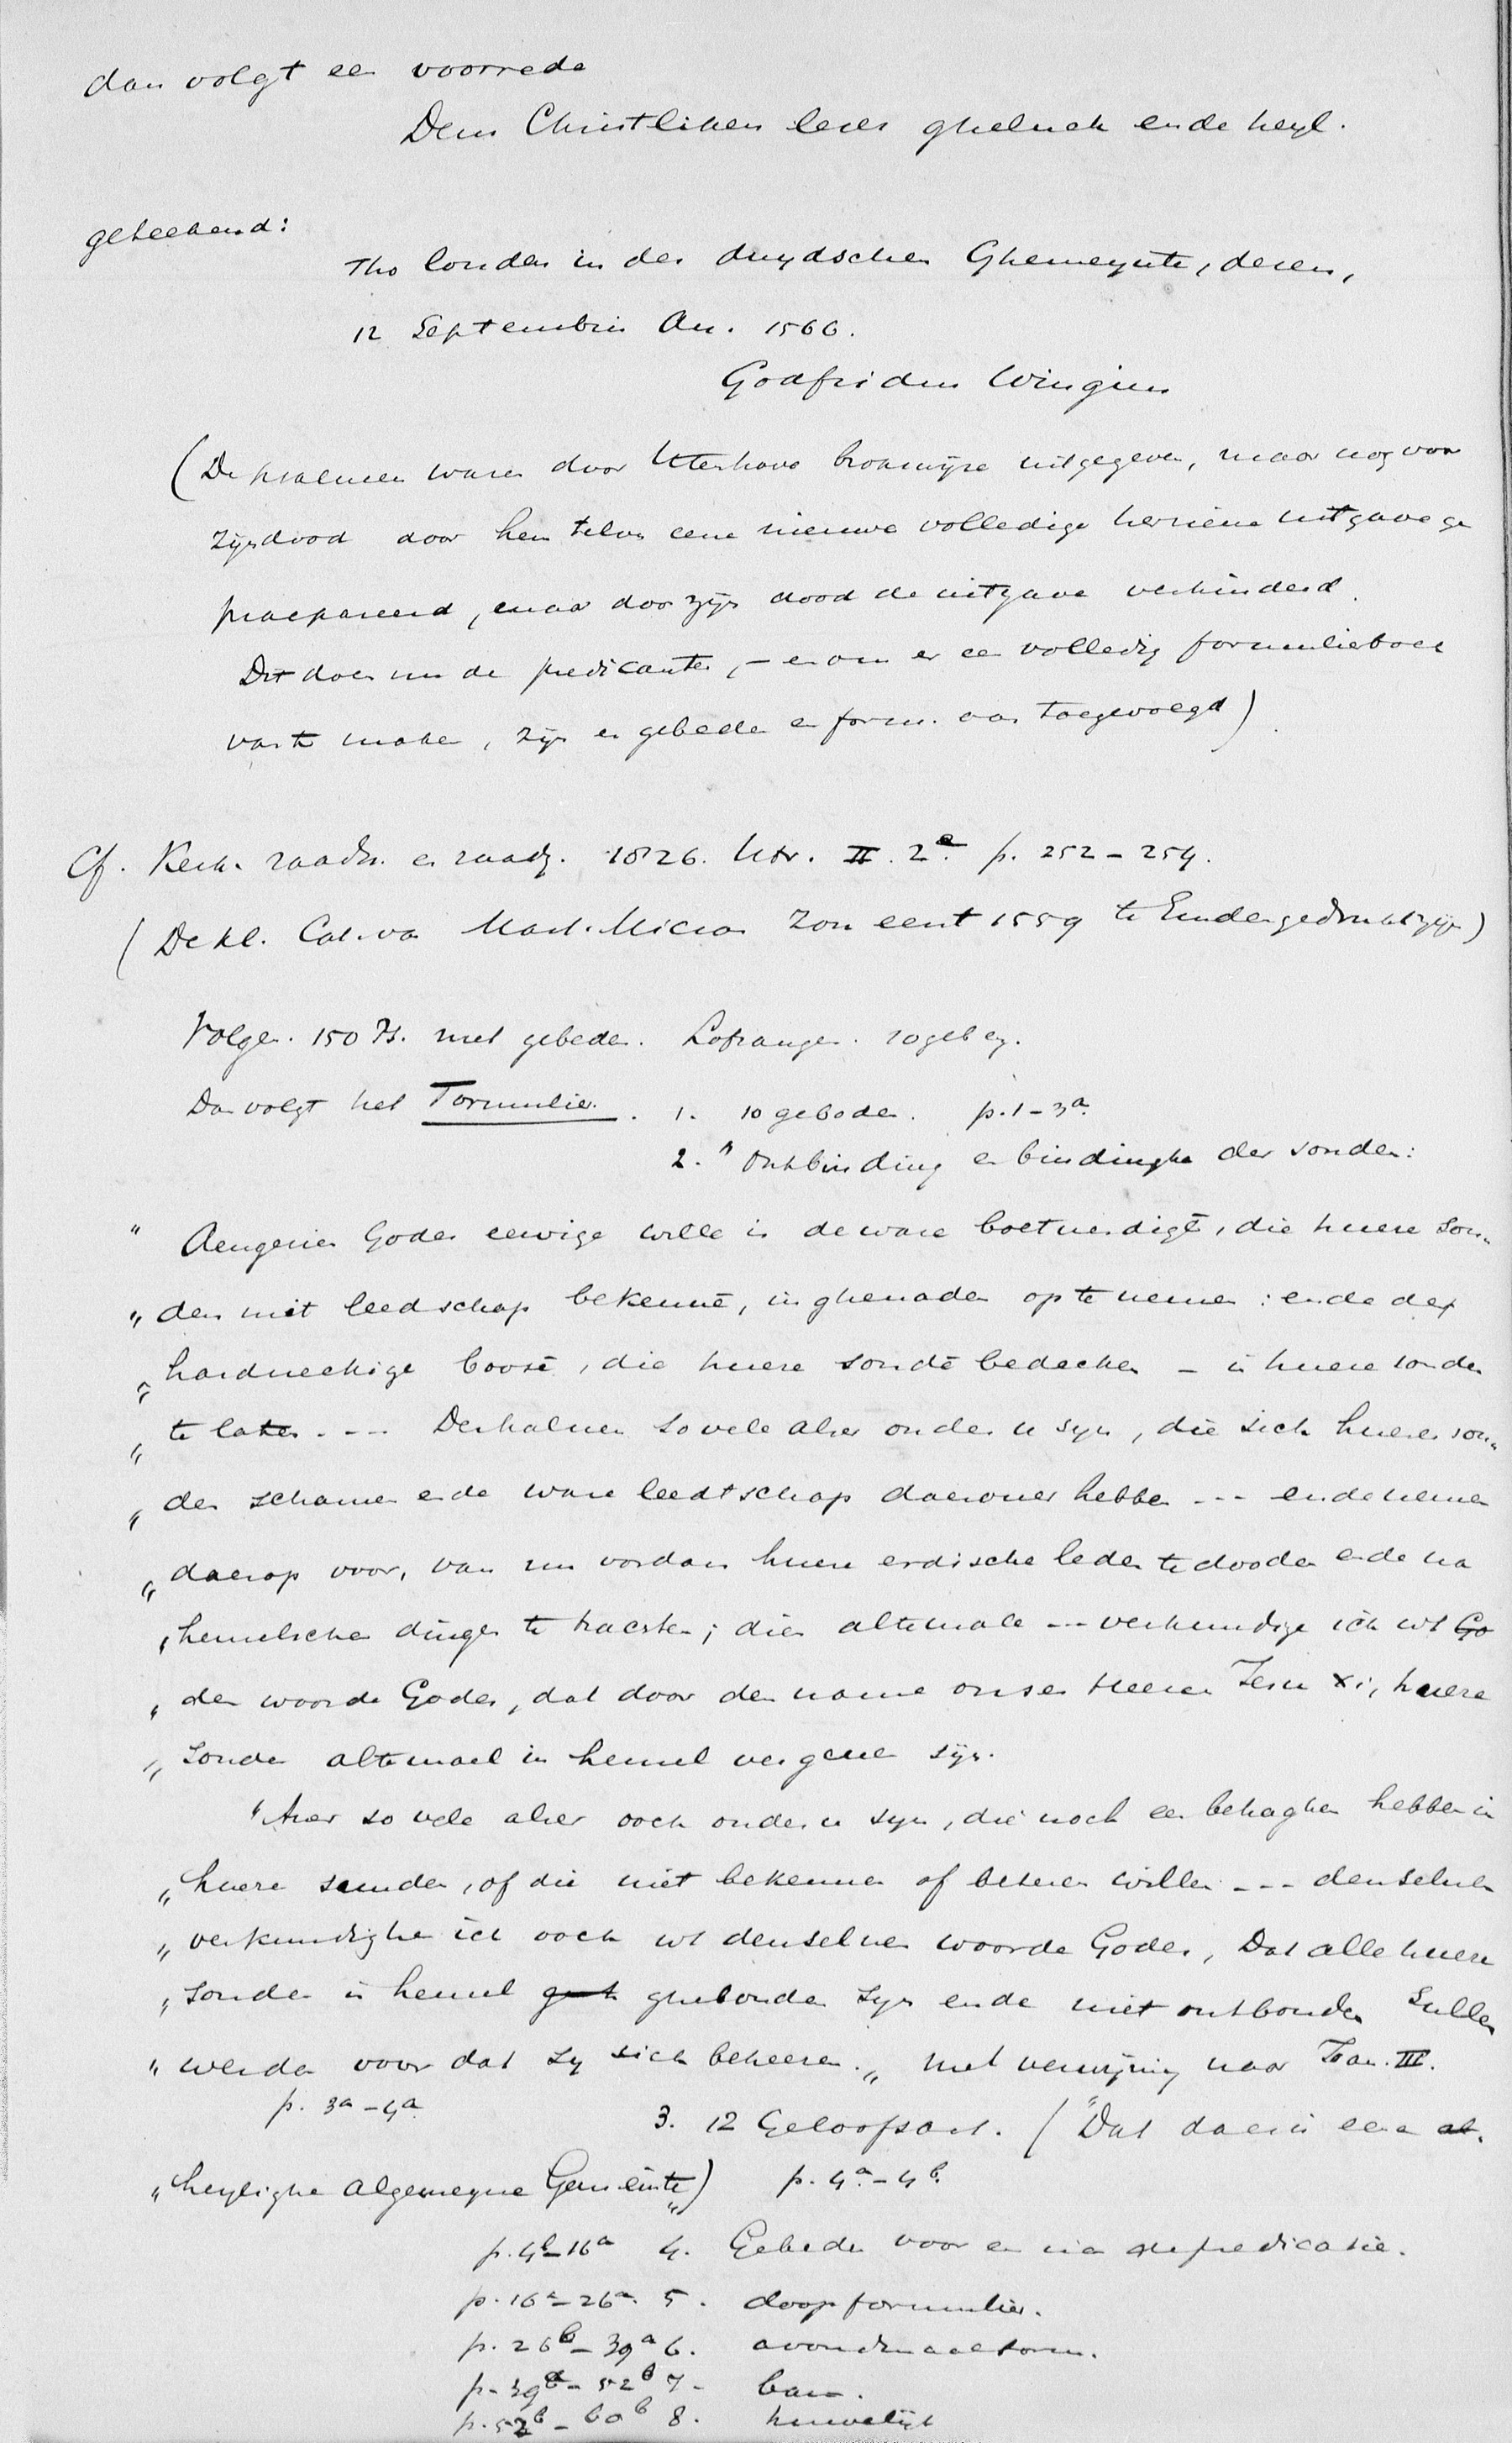 dan volgt een voorrede
Dem Christliken leser gheluck ende heyl.
geteekend:
Tho Londen in der duydscher Ghemeynte, deren,
12 Septembris An. 1566.
Godfridus Wingius
(De psalmen waren door Utenhove brokswijze uitgegeven, maar nog voor
zijn dood door hem zelven eene nieuwe volledige herziene uitgave ge
praepareerd, maar door zijn dood de uitgave verhinderd.
Dit doen nu de predicanten, – en om er een volledig formulierboek
van te maken, zijn er gebeden en form. aan toegevoegd)
Cf. Kerk. raadn. en raadg. 1826. Utr. II. 2e. p. 252 – 254.
(De kl. Cat. van Mart. Micron zou eerst 1559 te Emden gedrukt zijn)
Volgen 150 Ps. met gebeden. Lofzangen. 10 geb en.
Dan volgt het Formulier. 1. 10 geboden. p. 1 – 3a.
2. "Ontbinding en bindinghe der sonden:
" Aengesien Godes eewige wille is de ware boetverdigē, die huere son„
„ den mit leedschap bekennē, in ghenaden op te nemen : ende den
„ hardneckige boosē, die huere sondē bedecken – in huere sonden
„ te laten. --- Derhaluen so vele alser onder u syn, die sich huerer son„
„ den schamen ende ware leedtschap daerover hebben --- ende nemen
„ daerop voor, van nu vordan huere erdische leden te dooden ende na
„ hemelschen dingen te trachten; dien altemale --- verkundige ick wt Go
„ den woorde Godes, dat door den name onses Heeren Jesu Xi, huere
„ sonden altemael in hemel vergeven syn.
"Mer so vele alser oock onder u syn, die noch een behaghen hebben in
„ huere sunden, of die niet bekennen of beteren willen --- denseluen
„ verkundighe ick oock wt denseluen woorde Godes, Dat alle huere
„ sonden in hemel ghebonden syn ende niet ontbonden sullen
„ werden voor dat sy sich bekeeren. „ met verwijzing naar Joan. III.
p. 3a – 4a
3. 12 Geloofsart. ("Dat daer is eene al.
„ heylighe algemeyne Gemeinte„) p. 4a. – 4b.
p. 4b – 16a 4. Gebeden voor en na de predicatie.
p. 16a – 26a. 5. doopformulier.
p. 26b – 39a 6. avondmaalsform.
p. 39a – 52b 7. ban.
p. 52b – 60b 8. huwelijk